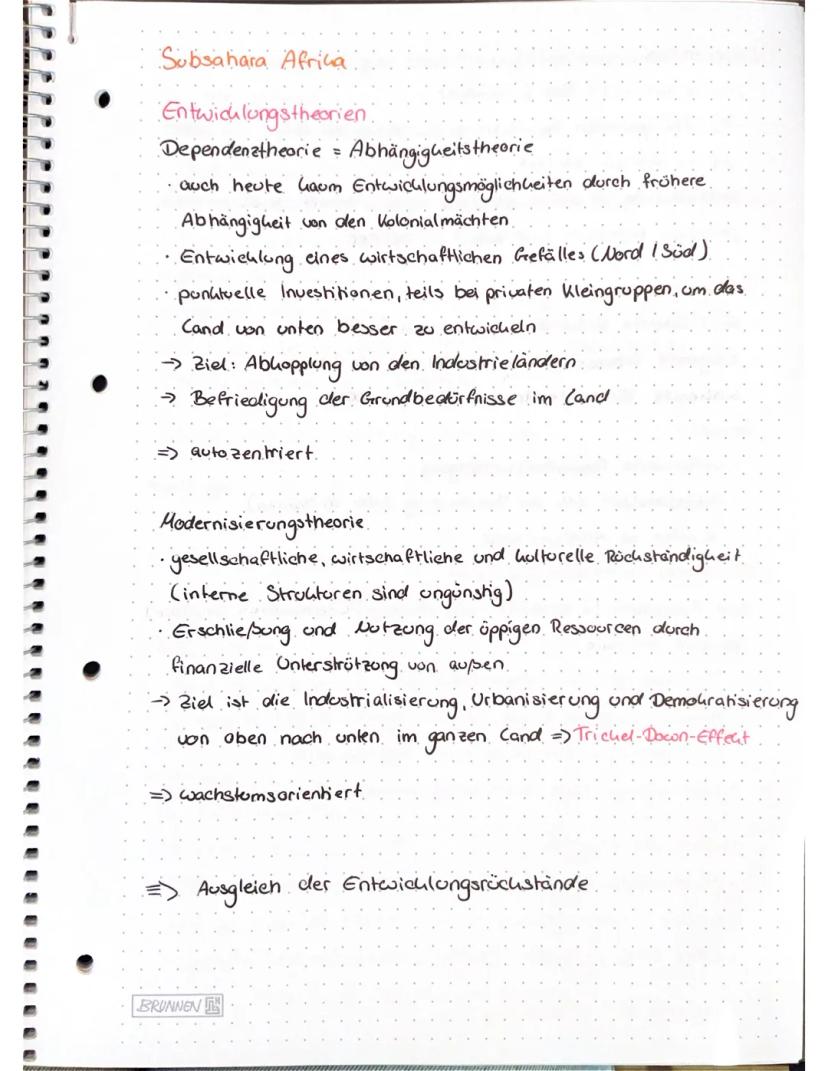 Subsahara Afrika
Entwicklungstheorien
Dependenztheorie = Abhängigkeitstheorie
· auch heute kaum Entwicklungsmöglichkeiten durch frühere
Abhängigkeit von den Kolonialmächten
· Entwicklung eines wirtschaftlichen Gefälles (Nord / Süd)
· punktuelle Investitionen, teils bei privaten Kleingruppen, um das
Land von unten besser zu entwickeln
→ Ziel: Abkopplung von den Industrieländern
→ Befriedigung der Grundbedürfnisse im Land
⇒ autozentriert
Modernisierungstheorie
· gesellschaftliche, wirtschaftliche und kulturelle Rückständigkeit
(interne Strukturen sind ungünstig)
· Erschließung und Nutzung der üppigen Ressourcen durch
finanzielle Unterstützung von außen
→ Ziel ist die Industrialisierung, Urbanisierung und Demokratisierung
von oben nach unten im ganzen Land ⇒ Trickel-Down-Effekt
⇒ wachstumsorientiert
⇛ Ausgleich der Entwicklungsrückstände
BRUNNEN